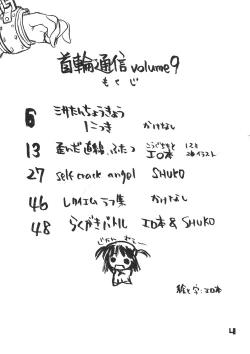 首輪通信 volume9
もくじ
6 ミサたんちょうきょう
1こつき かけなし
13 歪んだ直線、ふたつ エロ本
27 self crack angel SHUKO
46 レイエムラフ集 かけなし
48 らくがきバトル エロ本 & SHUKO
絵と字:エロ本
4